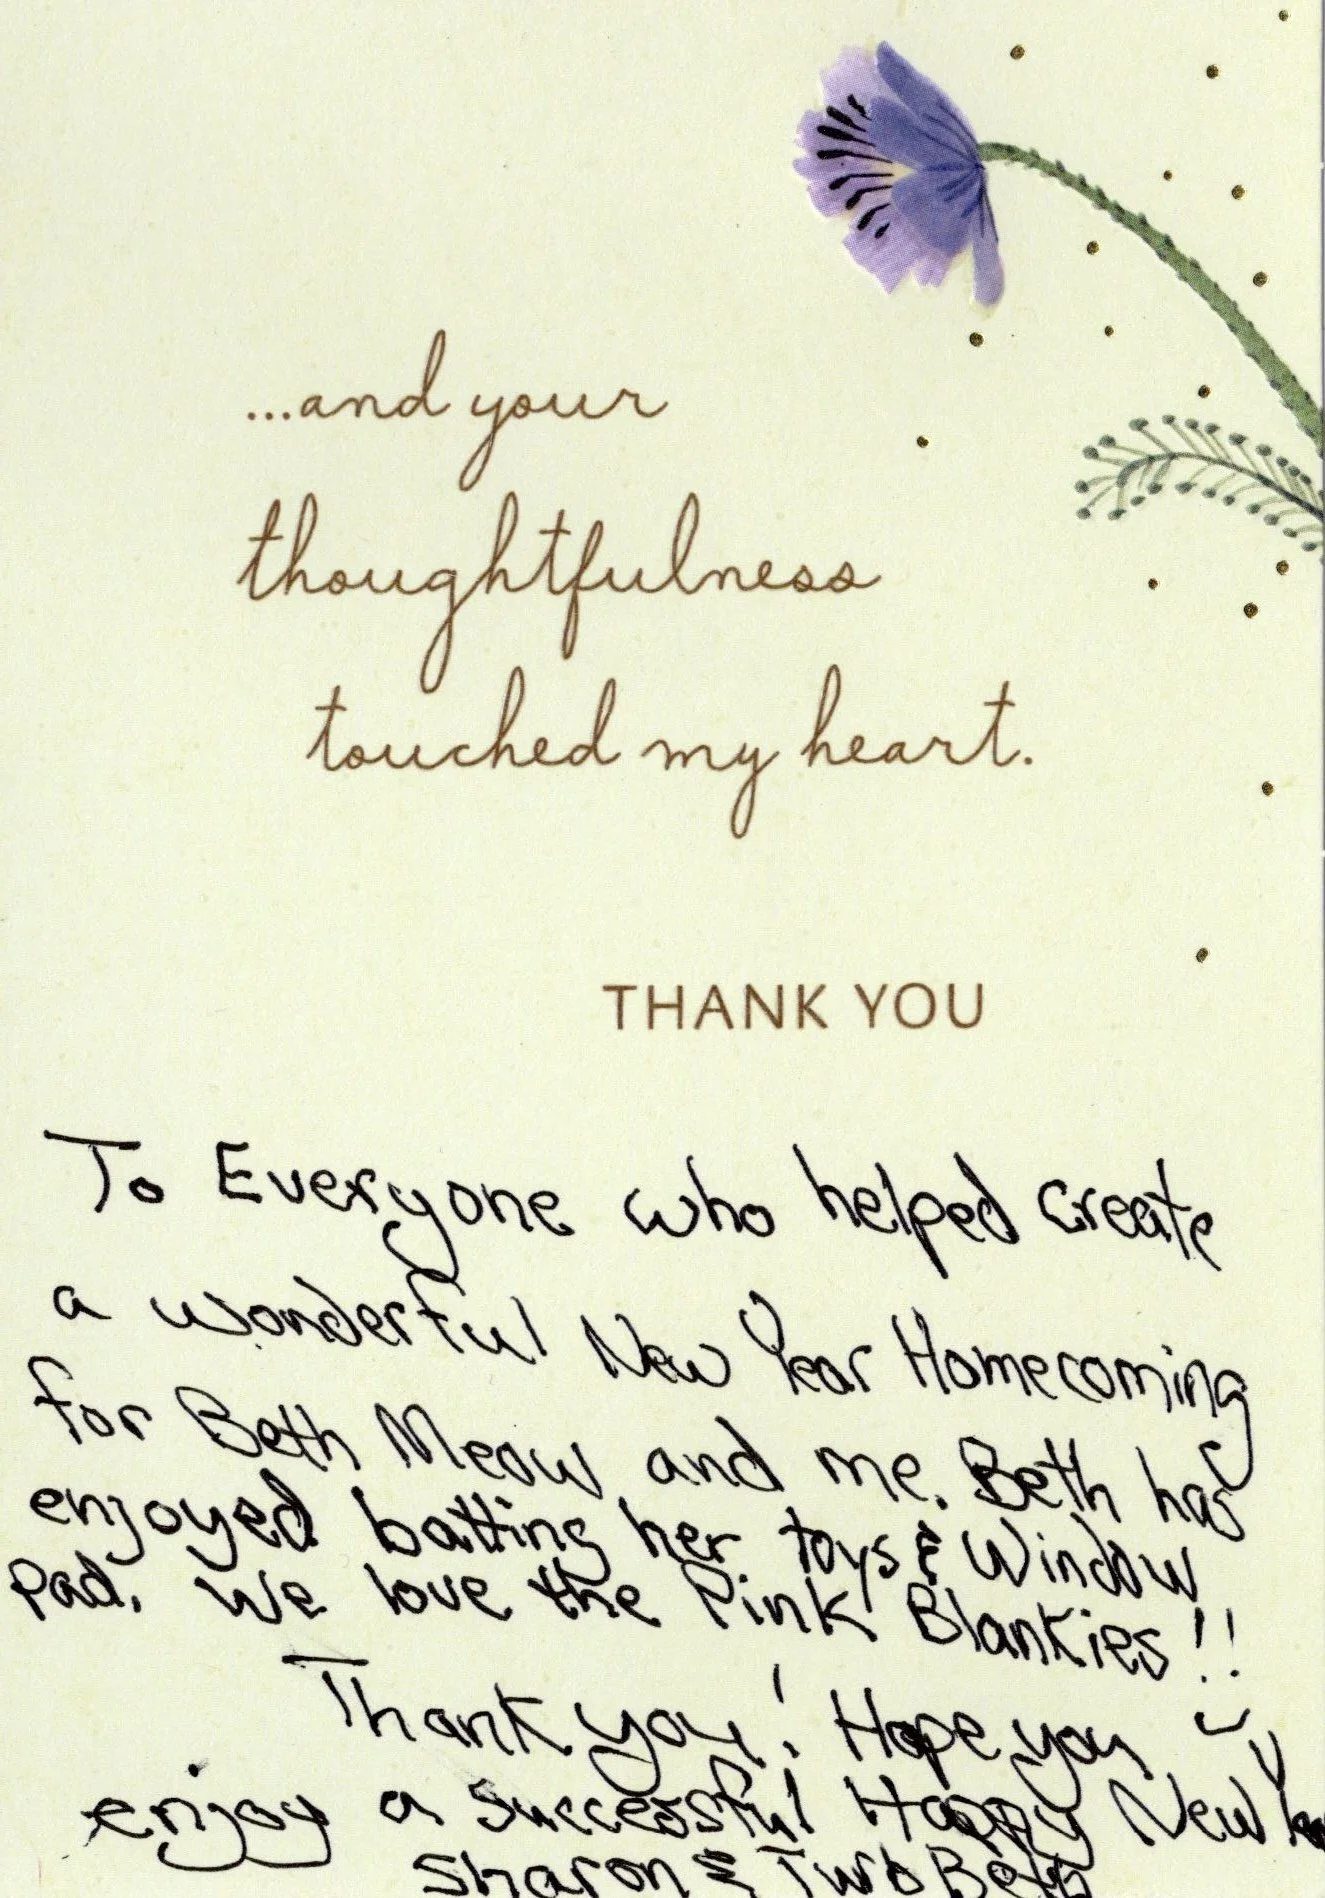 ...and your
thoughtfulness
touched my heart.
THANK YOU
To Everyone who helped create
a wonderful New Year Homecoming
for Beth Meow and me. Beth has
enjoyed batting her toys & Window
Pad. We love the Pink Blankies!!
Thank you! Hope you
enjoy a successful Happy New
Sharon &